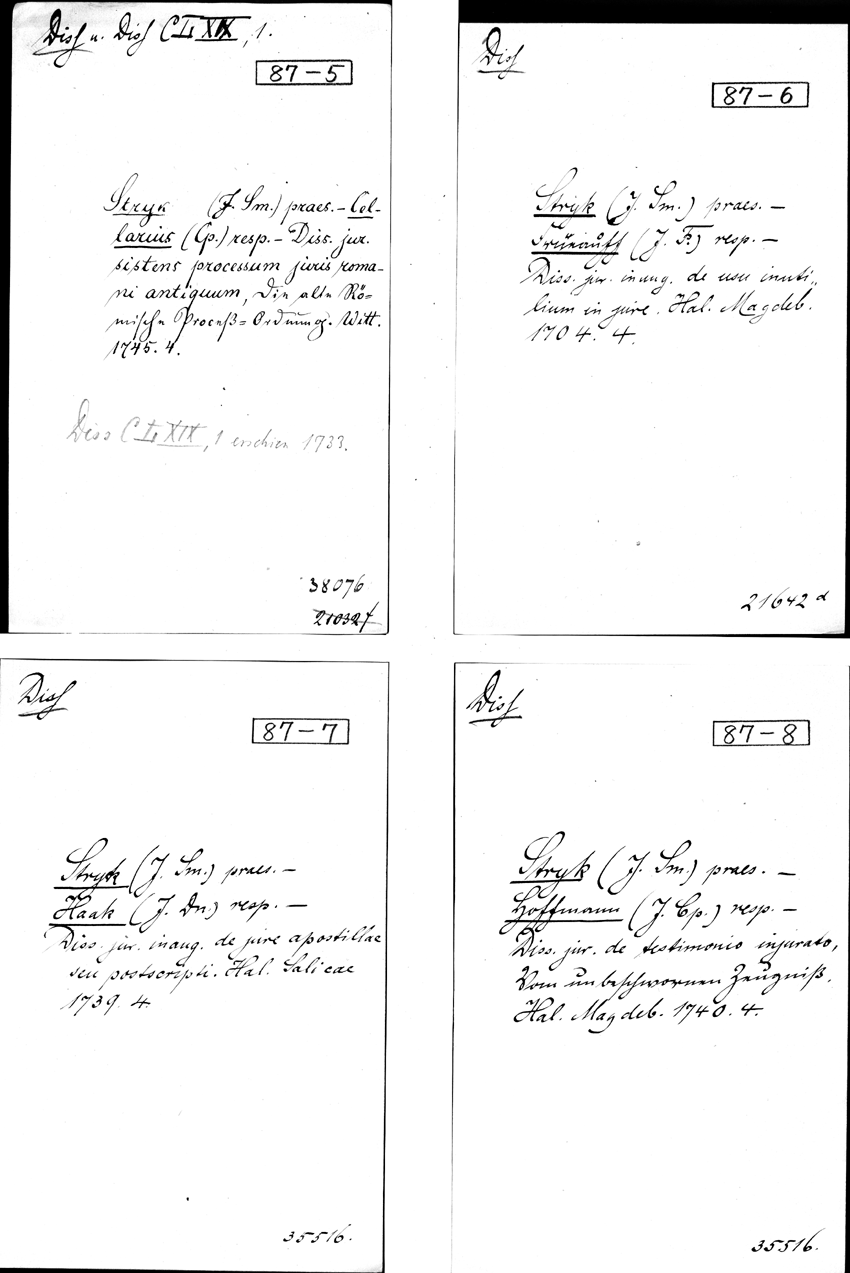 Diss u. Diss C L XIX, 1.
87-5
Stryk (J. Sm.) praes. - Cel-
larius (Cp.) resp. - Diss. jur.
sistens processum juris roma-
ni antiquum, Die alte Rö=
mische Proceß=Ordnung. Witt.
1745. 4.
Diss C L XIX, 1 erschien 1733.
38076
21032f
Diss
87-6
Stryk (J. Sm.) praes. -
(J. F.) resp. -
Diss. jur. inaug. de usu inuti„
lium in jure. Hal. Magdeb.
1704. 4.
21642 d
Diss
87-7
Stryk (J. Sm.) praes. -
Haak (J. Dn.) resp. -
Diss. jur. inaug. de jure apostillae
seu postscripti. Hal. Salicae
1739. 4.
35516.
Diss
87-8
Stryk (J. Sm.) praes. -
Hoffmann (J. Cp.) resp. -
Diss. jur. de testimonio injurato,
Vom unbeschwornen Zeugniß.
Hal. Magdeb. 1740. 4.
35516.